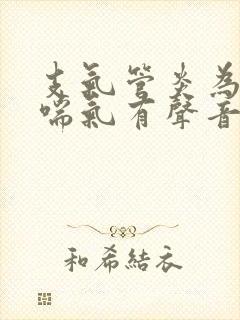 支氣管炎為
喘氣有聲音
和希結衣